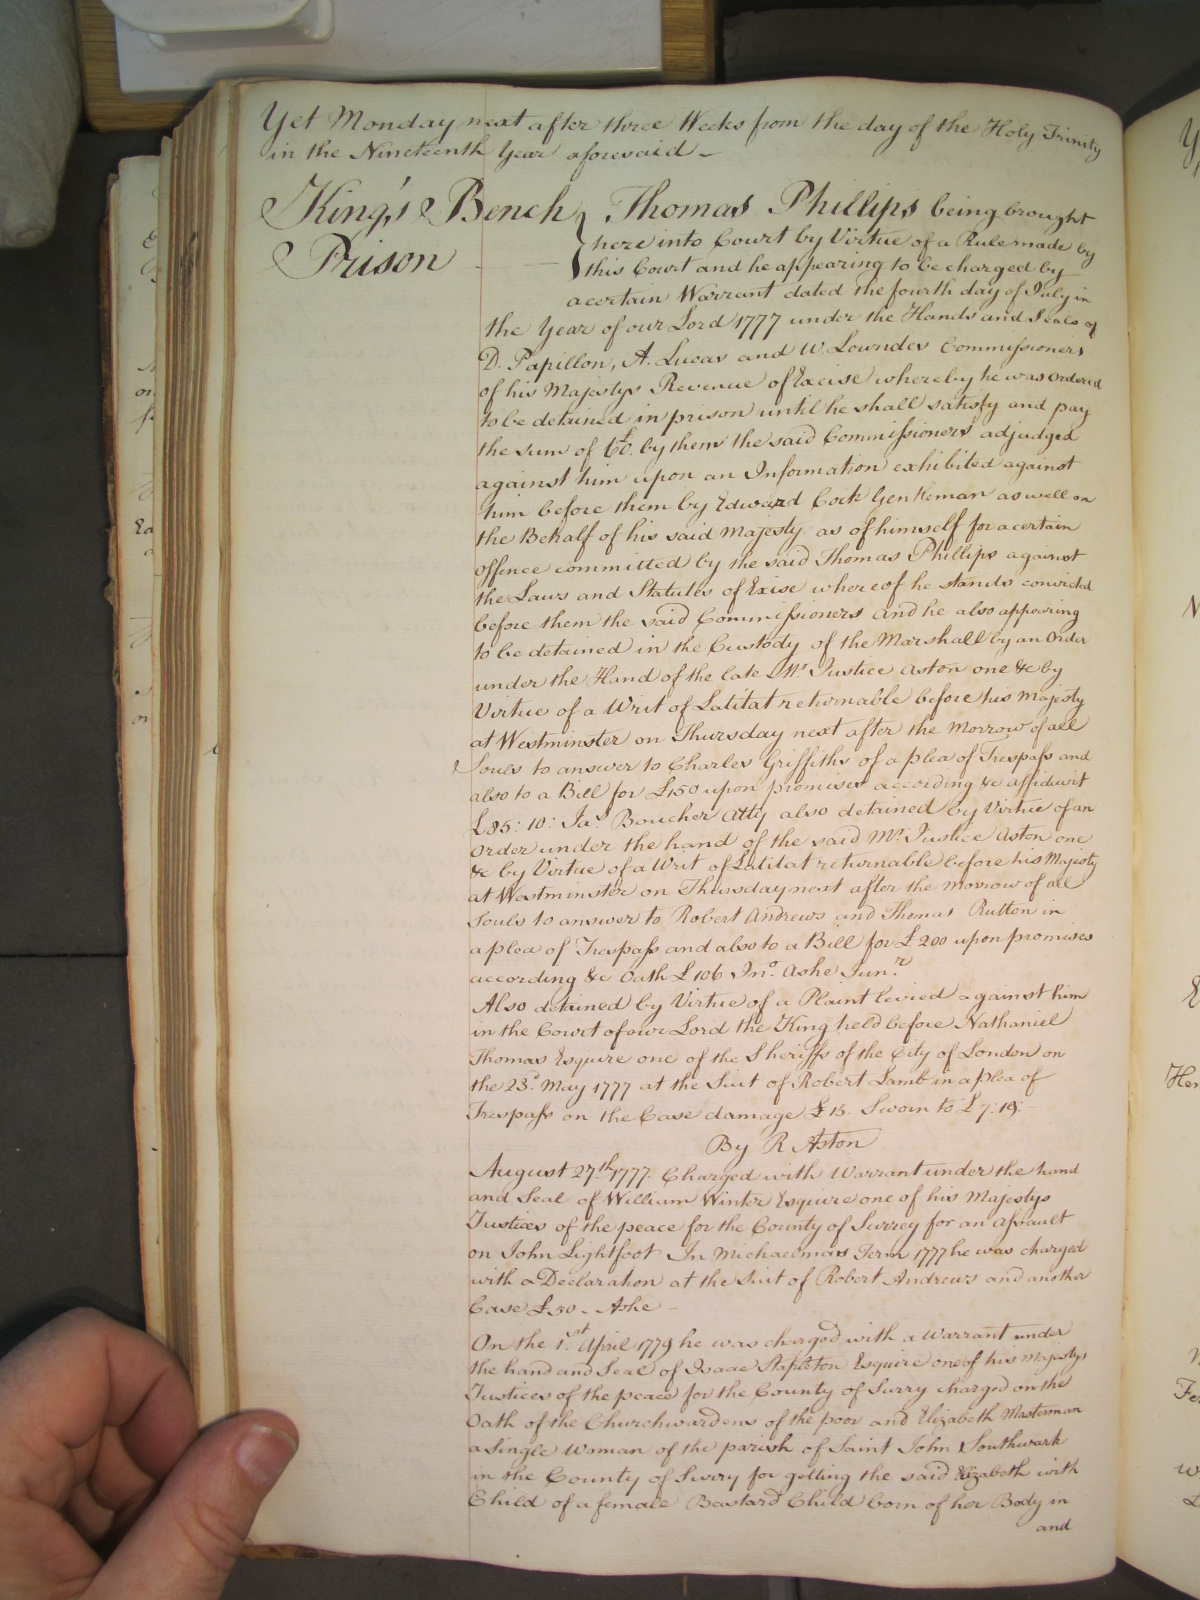 Yet Monday next after three Weeks from the day of the Holy Trinity
in the Nineteenth Year aforesaid -
King's Bench Thomas Phillips being brought
Prison here into Court by Virtue of a Rule made by
this Court and he appearing to be charged by
a certain Warrant dated the fourth day of July in
the Year of our Lord 1777 under the Hands and Seals of
D. Papillon, A. Lucas and W. Lowndes Commissioners
of his Majestys Revenue of Excise whereby he was ordered
to be detained in prison until he shall satisfy and pay
the sum of by them the said Commissioners adjudged
against him upon an Information exhibited against
him before them by Edward Cock Gentleman as well on
the Behalf of his said Majesty as of himself for a certain
offence committed by the said Thomas Phillips against
the Laws and Statutes of Exise whereof he stands convicted
before them the said Commissioners and he also appearing
to be detained in the Custody of the Marshall by an Order
under the Hand of the late Mr. Justice Aston one &c by
Virtue of a Writ of Latitat returnable before his Majesty
at Westminster on Thursday next after the Morrow of all
Souls to answer to Charles Griffiths of a plea of Trespass and
also to a Bill for £150 upon promises according &c affidavit
£85: 10: Jas. Boucher Atty also detained by Virtue of an
order under the hand of the said Mr. Justice Aston one
&c by Virtue of a Writ of Latitat returnable before his Majesty
at Westminster on Thursday next after the morrow of all
Souls to answer to Robert Andrews and Thomas Rutton in
a plea of Trespass and also to a Bill for £200 upon promises
according &c Oath £106 Jno. Ashe Junr.
Also detained by Virtue of a Plaint levied against him
in the Court of our Lord the King held before Nathaniel
Thomas Esquire one of the Sheriffs of the City of London on
the 23d. May 1777 at the Suit of Robert Lamb in a plea of
Trespass on the Case damage £15. Sworn to £7:19:
By R Aston
August 27th. 1777. Charged with Warrant under the hand
and Seal of William Winter Esquire one of his Majestys
Justices of the peace for the County of Surrey for an assault
on John Lightfoot In Michaelmas Term 1777 he was charged
with a Declaration at the Suit of Robert Andrews and another
Case £50 - Ashe -
On the 1st. April 1779 he was charged with a Warrant under
the hand and Seal of Isaac Stapleton Esquire one of his Majestys
Justices of the peace for the County of Surry charged on the
Oath of the Churchwardens of the poor and Elizabeth Masterman
a Single Woman of the parish of Saint John Southwark
in the County of Surry for getting the said Elizabeth with
Child of a female Bastard Child born of her Body in
and